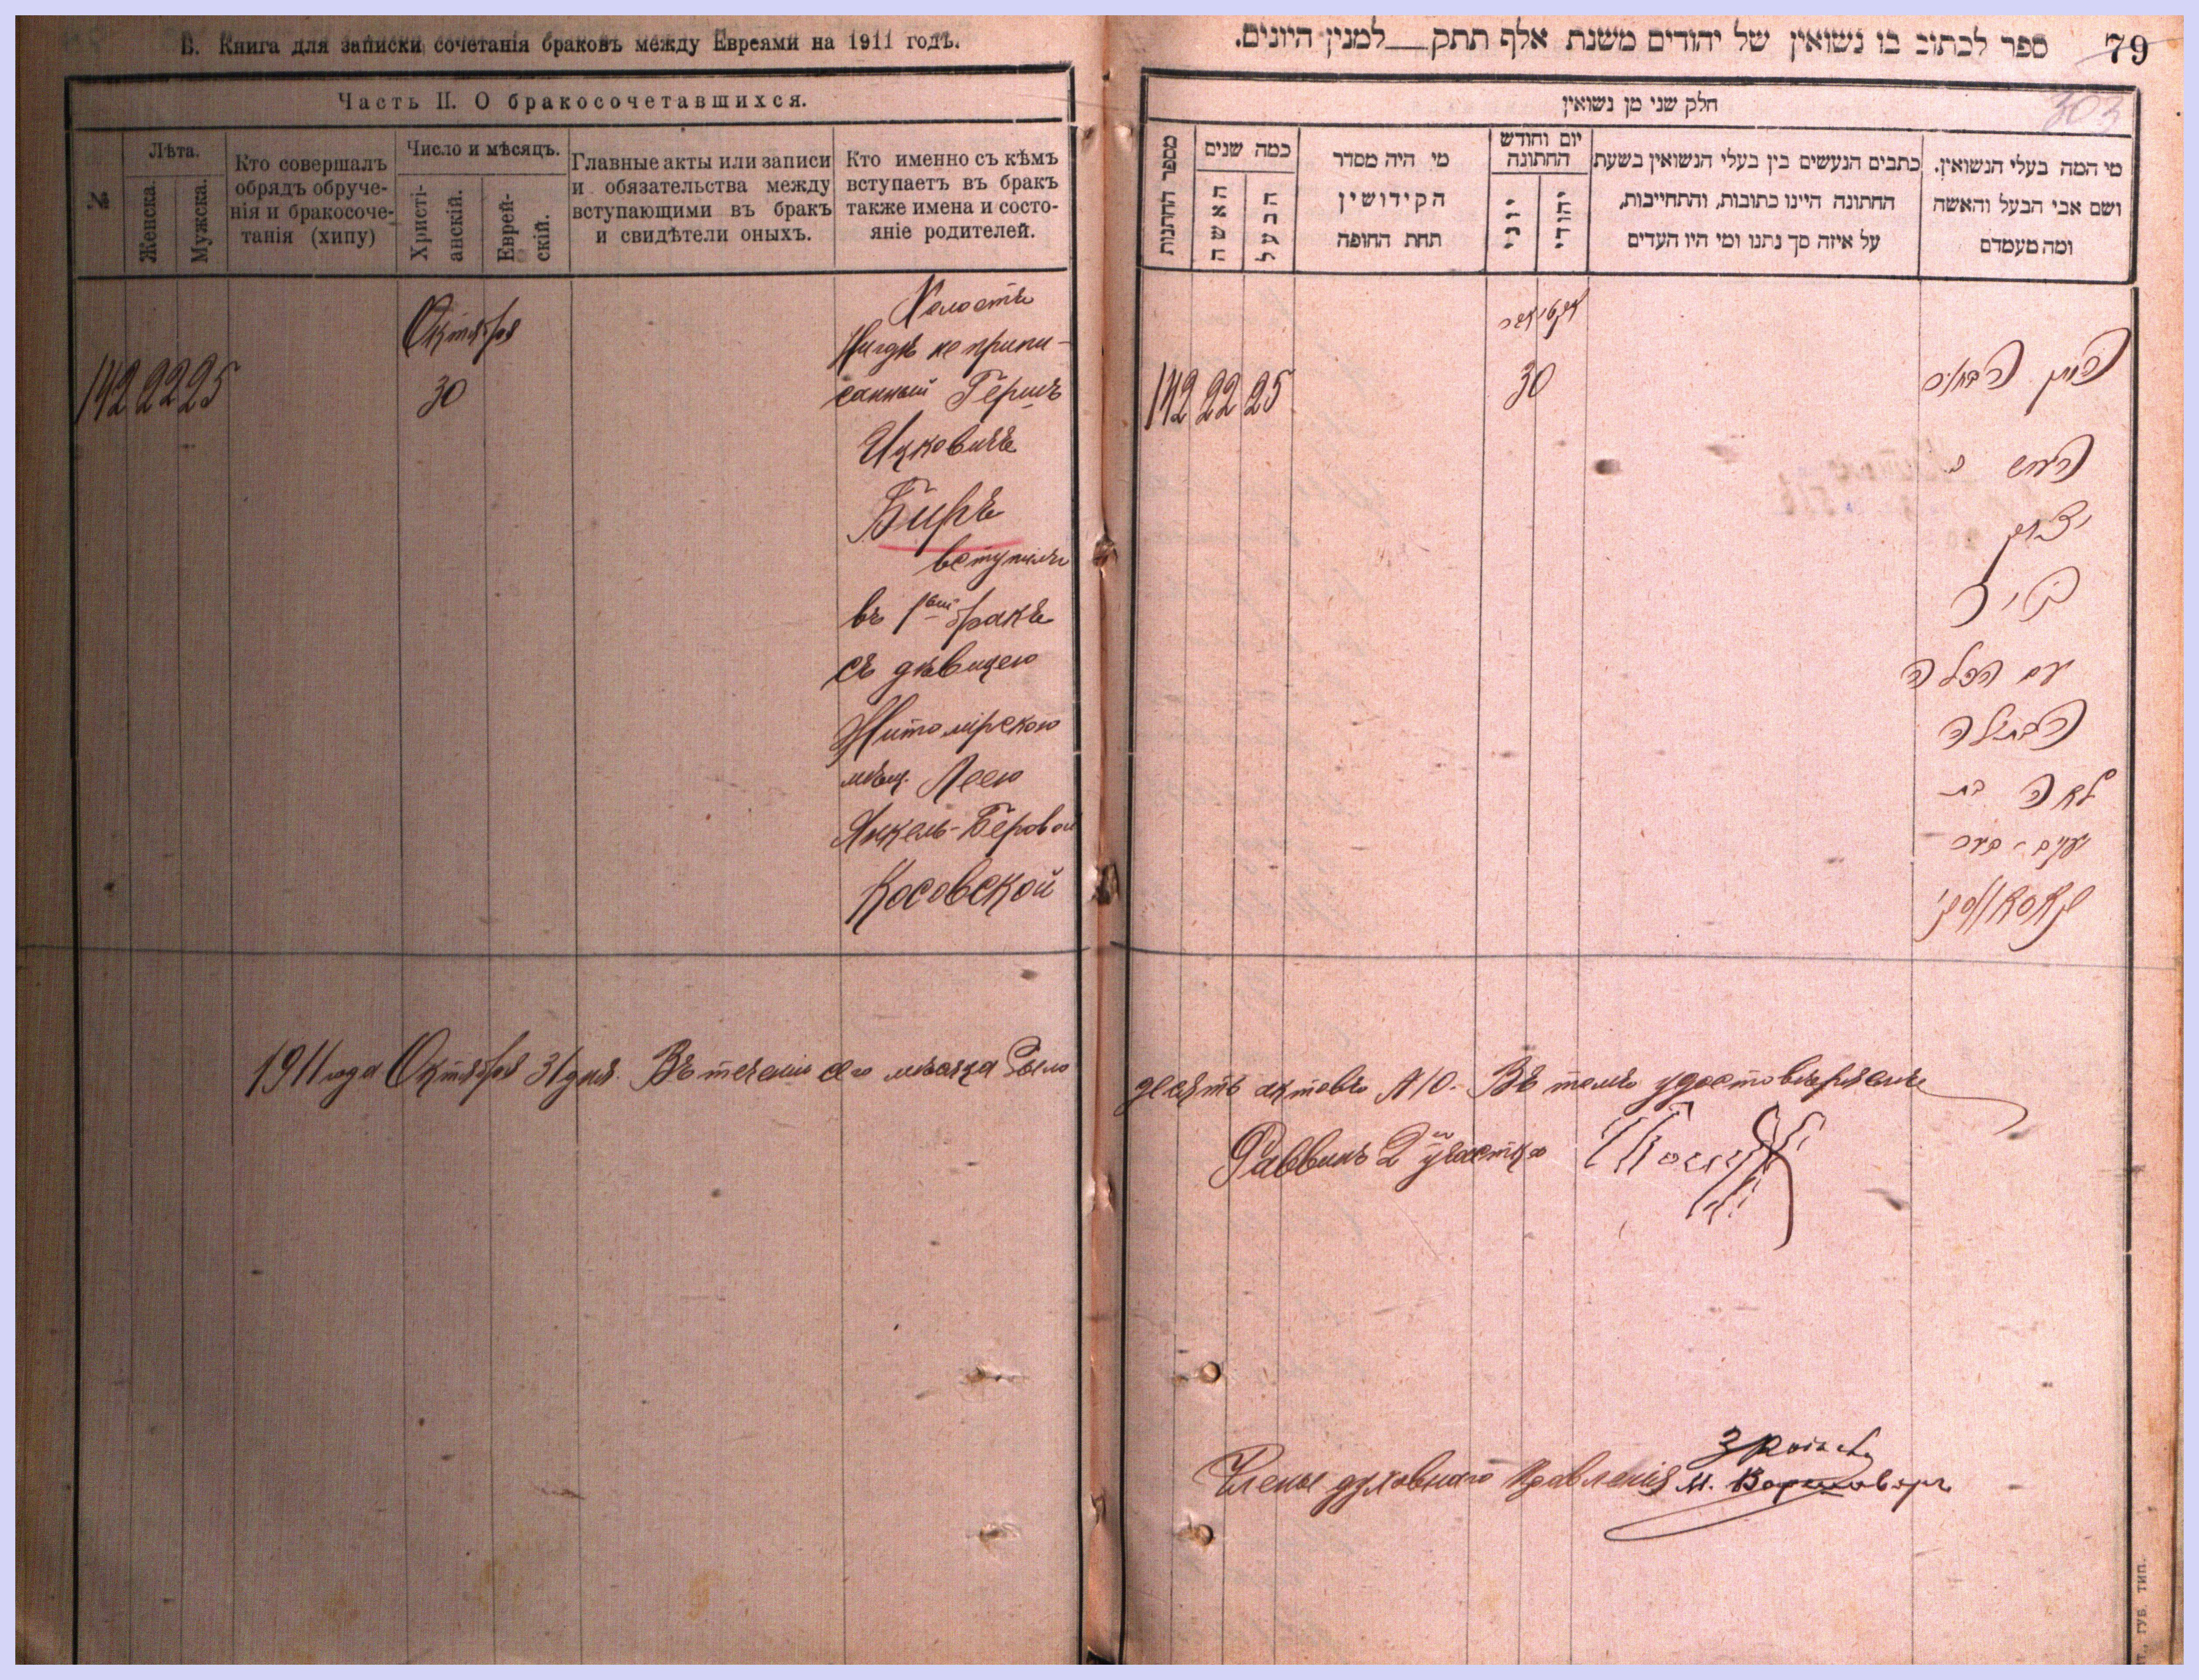 В. Книга для записки сочетанія браковъ между Евреями на 1911 годъ.
Часть II. О бракосочетавшихся.
№
Лѣта.
Женска.
Мужска.
Кто совершалъ
обрядъ обруче-
нія и бракосоче-
танія (хипу)
Число и мѣсяцъ.
Христі-
анскій.
Еврей-
скій.
Главные акты или записи
и обязательства между
вступающими въ бракъ
и свидѣтели оныхъ.
Кто именно съ кѣмъ
вступаетъ въ бракъ
также имена и состо-
яніе родителей.
142 22 25
Октября
30
Холостъ
Нигдѣ не припи-
санный Гершъ
Ицковичъ
Биръ
вступилъ
въ 1вый бракъ
съ дѣвицею
Житомірскою
мѣщ. Леею
Янкель-Беровой
Косовской
1911 года Октября 31 дня. Въ теченіи сего мѣсяца было
ספר לכתוב בו נשואין של יהודים משנת אלף תתק__למנין היונים.
79
303
חלק שני מן נשואין
מספר החתנות
כמה שנים
האשה
הבעל
מי היה מסדר
הקידושין
תחת החופה
יום וחודש
החתונה
יוני
יהודי
כתבים הנעשים בין בעלי הנשואין בשעת
החתונה היינו כתובות, והתחייבות,
על איזה סך נתנו ומי היו העדים
מי המה בעלי הנשואין.
ושם אבי הבעל והאשה
ומה מעמדם
142 22 25
אקטיאבר
30
החתן הבחור
הערש ב
יצחק
ביר
עם הכלה
הבתולה
לאה בת
יעקב-בער
קאסאווסקי
десять актовъ №10. Въ томъ удостовѣряемъ
Раввинъ 2го участка
Члены духовнаго Правленія
М.
ГУБ. ТИП.